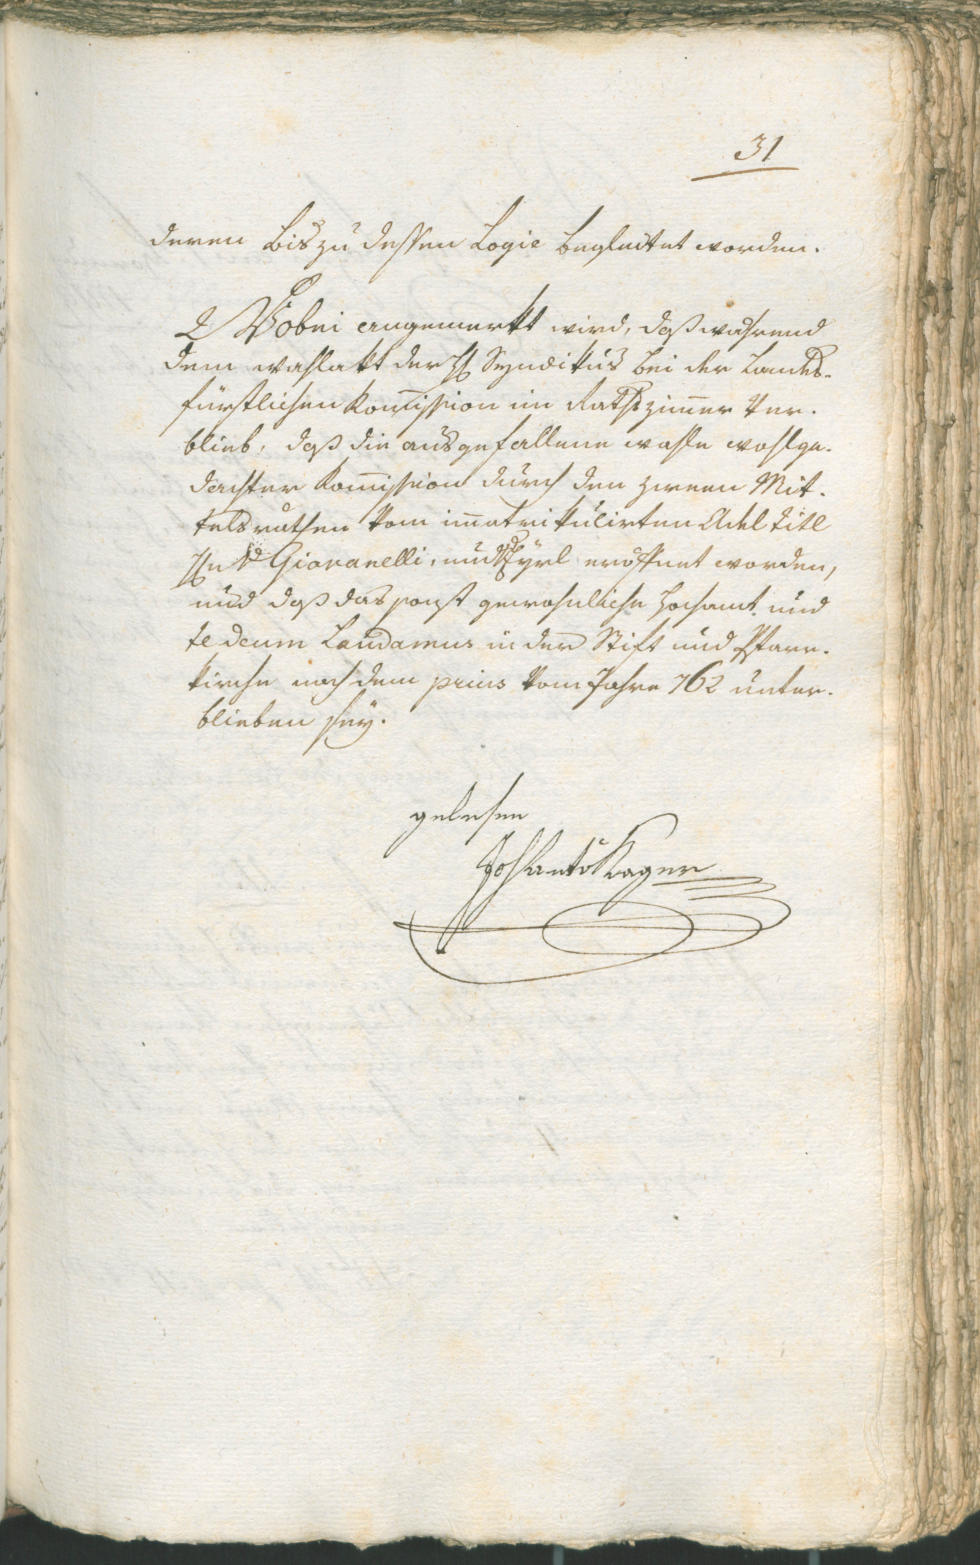 31
deren bis zu dessen Logie begleitet worden.
Wobei angemerkt wird, daß während
dem wahlakt der H Syndikus bei der Landes-
fürstlichen Kom̄ission im Rathszim̄er ver-
blieb, daß die ausgefallene wahle wohlge-
dachter Kom̄ission durch den zween Mit-
telsräthen vom im̄atrikulirten Adel titl
Hn v Giovanelli, und v Pyrl eröffnet worden,
und daß das sonst gewohnliche hochamt und
te deum Laudamus in der Stift und Pfarr-
kirche nach dem prius vom Jahre 762 unter-
blieben seÿ.
gelesen
Joh Anto Kager